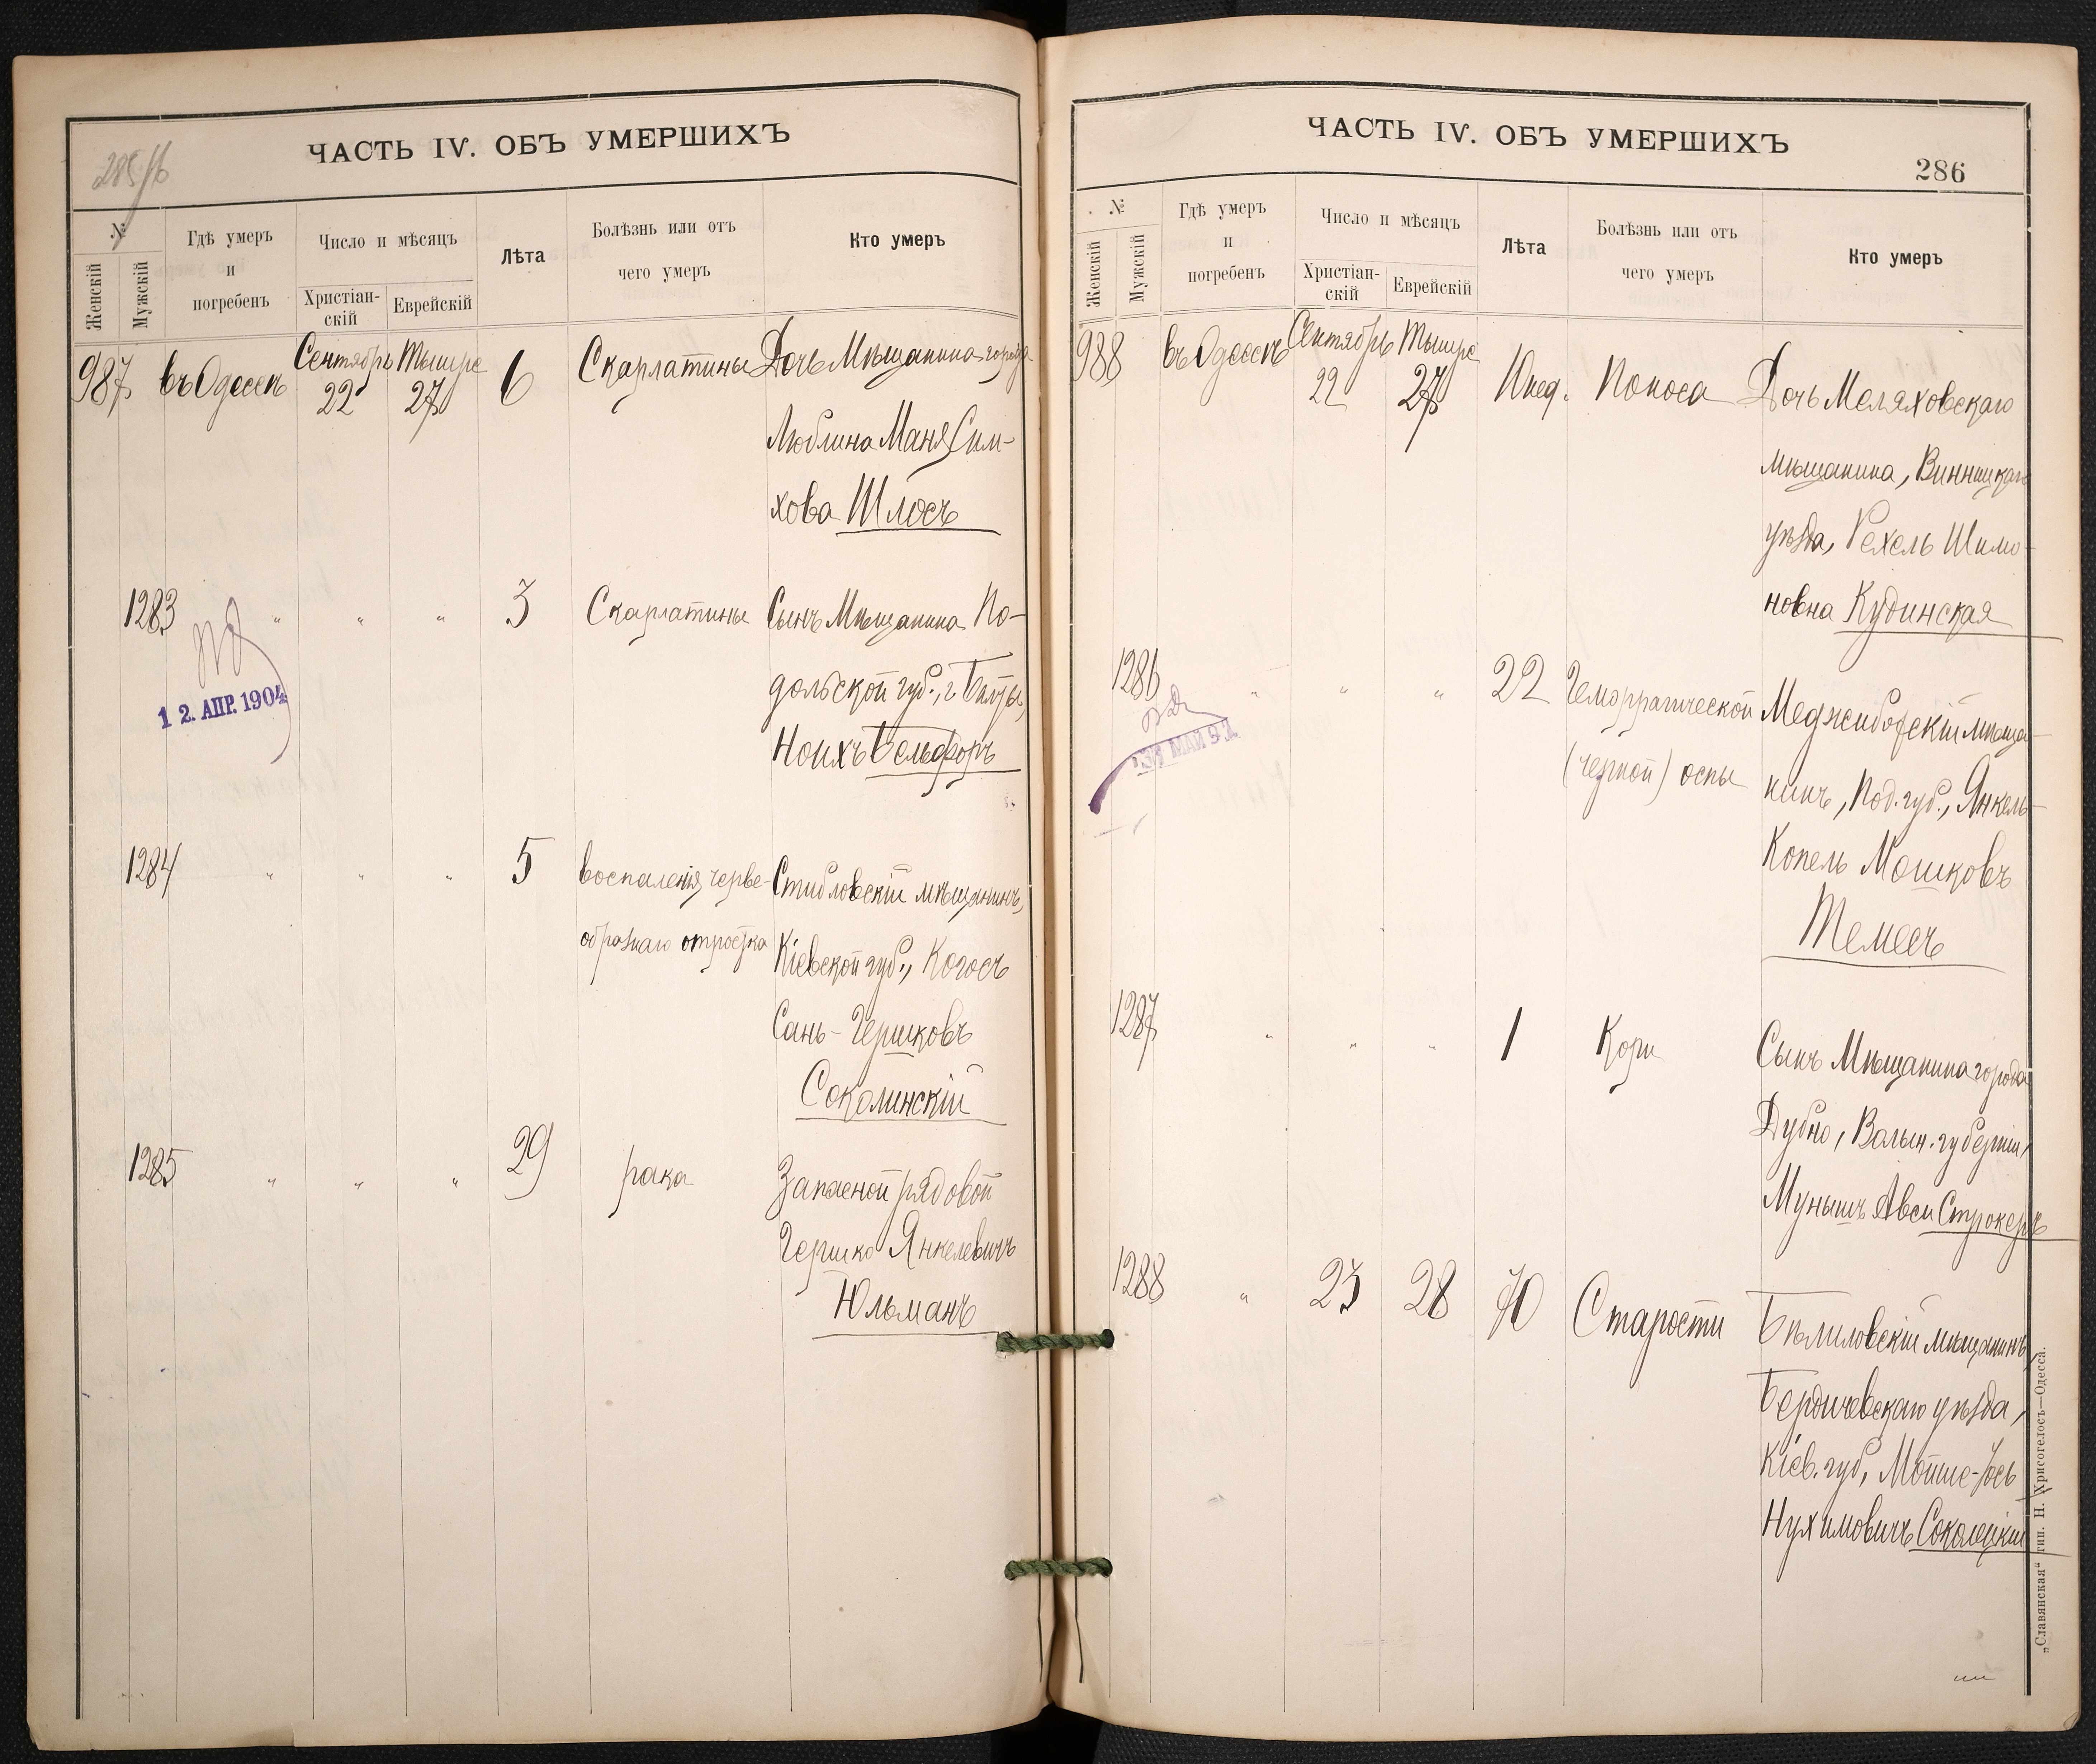 ЧАСТЬ IV. ОБЪ УМЕРШИХЪ
№
Женскій
Мужскій
Гдѣ умеръ
и
погребенъ
Число и мѣсяцъ
Христіан-
скій
Еврейскій
Лѣта
Болѣзнь или отъ
чего умеръ
Кто умеръ
987 въ Одессѣ Сентябрь 22 Тышре 27 6 Скарлатины Дочь Мѣщанина города
Люблина Маня Сим-
хова Шлосъ
1283 " " " 3 Скарлатины Сынъ Мѣщанина По-
дольской губ., г. Балты,
Ноихъ Бельфоръ
12. АПР. 1904
1284 " " " 5 воспаленія черве- Стибловскій мѣщанинъ,
образнаго отростка Кіевской губ., Когосъ
Сань-Гершковъ
Соколинскій
1285 " " " 29 рака Запасной рядовой
Гершко Янкелевичъ
Юльманъ
ЧАСТЬ IV. ОБЪ УМЕРШИХЪ
286
№
Женскій
Мужскій
Гдѣ умеръ
и
погребенъ
Число и мѣсяцъ
Христіан-
скій
Еврейскій
Лѣта
Болѣзнь или отъ
чего умеръ
Кто умеръ
988 въ Одессѣ Сентябрь 22 Тышре 27 10 нед. Поноса Дочь Меляховскаго
мѣщанина, Винницкаго
уѣзда, Рехель Шимо-
новна Кудинская
1286 " " " 22 Геморрагической Меджибожскій мѣща-
(черной) оспы нинъ, Под. губ., Янкель-
Копель Мошковъ
Темесъ
1287 " " " 1 Кори Сынъ Мѣщанина города
Дубно, Волын. губерніи,
Мунышъ Авси Строкеръ
1288 " 23 28 70 Старости Бѣлиловскій мѣщанинъ,
Бердичевскаго уѣзда,
Кіев. губ., Мойше-Іось
Нухимовичъ Соколецкій
„Славянская“ тип. Н. Хрисогелосъ—Одесса.